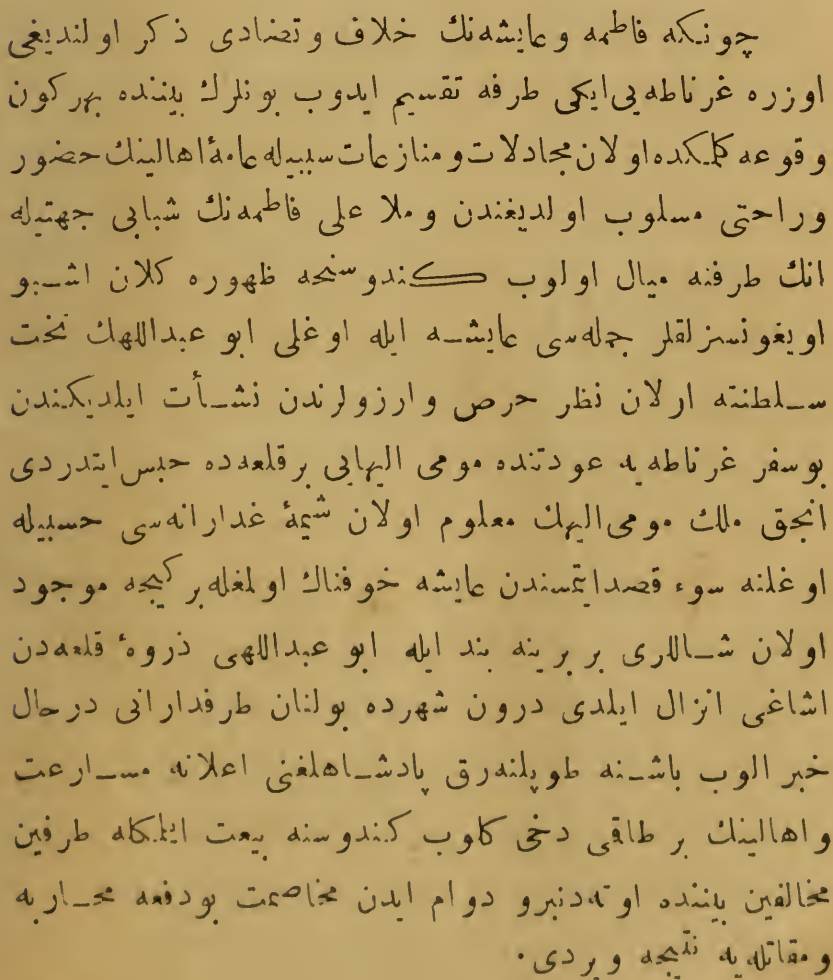 چونكه فاطمه وعايشه‌نك خلاف وتضادی ذكر اولنديغی
اوزره غرناطه‌يی ايكی طرفه تقسيم ايدوب بونلرك بيننده بهركون
وقوعه كلمكده‌اولان مجادلات ومنازعات سببيله عامۀ اهالينك حضور
وراحتی مسلوب اولديغندن وملا علی فاطمه‌نك شبابی جهتيله
انك طرفنه ميال اولوب كندوسنجه ظهوره كلان اشبو
اويغونسزلقلر جمله‌سی عايشه ايله اوغلی ابو عبداللهك تخت
سلطنته ارلان نظر حرص وارزولرندن نشأت ايلديكندن
بوسفر غرناطه‌يه عودتنده مومی اليهايی برقلعه‌ده حبس ايتدردی
انجق ملك مومی‌اليهك معلوم اولان شيمۀ غدارانه‌سی حسبيله
اوغلنه سوء قصدايتمسندن عايشه خوفناك اولمغله بركيجه موجود
اولان شاللری بر برينه بند ايله ابو عبداللهی ذروۀ قلعه‌دن
اشاغی انزال ايلدی درون شهرده بولنان طرفدارانی درحال
خبر الوب باشنه طوپلنه‌رق پادشاهلغنی اعلانه مسارعت
واهالينك بر طاقی دخی كلوب كندوسنه بيعت ايتمكله طرفين
مخالفين بيننده اوته‌دنبرو دوام ايدن مخاصمت بودفعه محاربه
ومقاتله‌يه نتيجه ويردی.